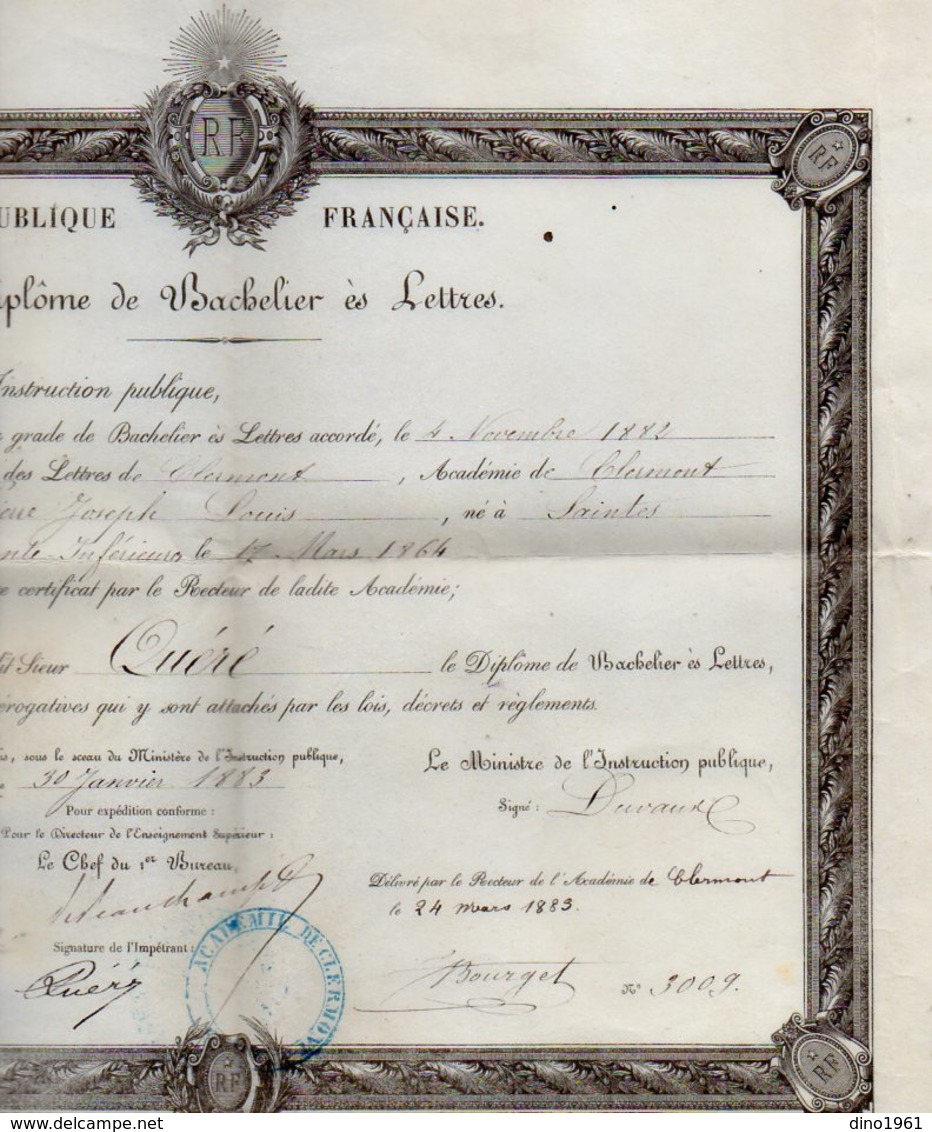 RF
RF
UBLIQUE FRANÇAISE.
iplôme de Bachelier ès Lettres.
Instruction publique,
grade de Bachelier ès Lettres accordé, le 4 Novembre 1882
des Lettres de Clermont, Académie de Clermont
Joseph Louis, né à Saintes
nte-Inférieure le 17 Mars 1864
e certificat par le Recteur de ladite Académie;
dit Sieur Quéré le Diplôme de Bachelier ès Lettres,
érogatives qui y sont attachés par les lois, décrets et règlements.
is, sous le sceau du Ministère de l'Instruction publique,
30 Janvier 1883
Le Ministre de l'Instruction publique,
Pour expédition conforme:
Signé: Duvaux
Pour le Directeur de l'Enseignement Supérieur:
Le Chef du 1er Bureau,
Délivré par le Recteur de l'Académie de Clermont
le 24 mars 1883.
Signature de l'Impétrant:
ACADÉMIE DE CLERMONT
Quéré
Bourget
N° 3009.
RF
RF
dino1961